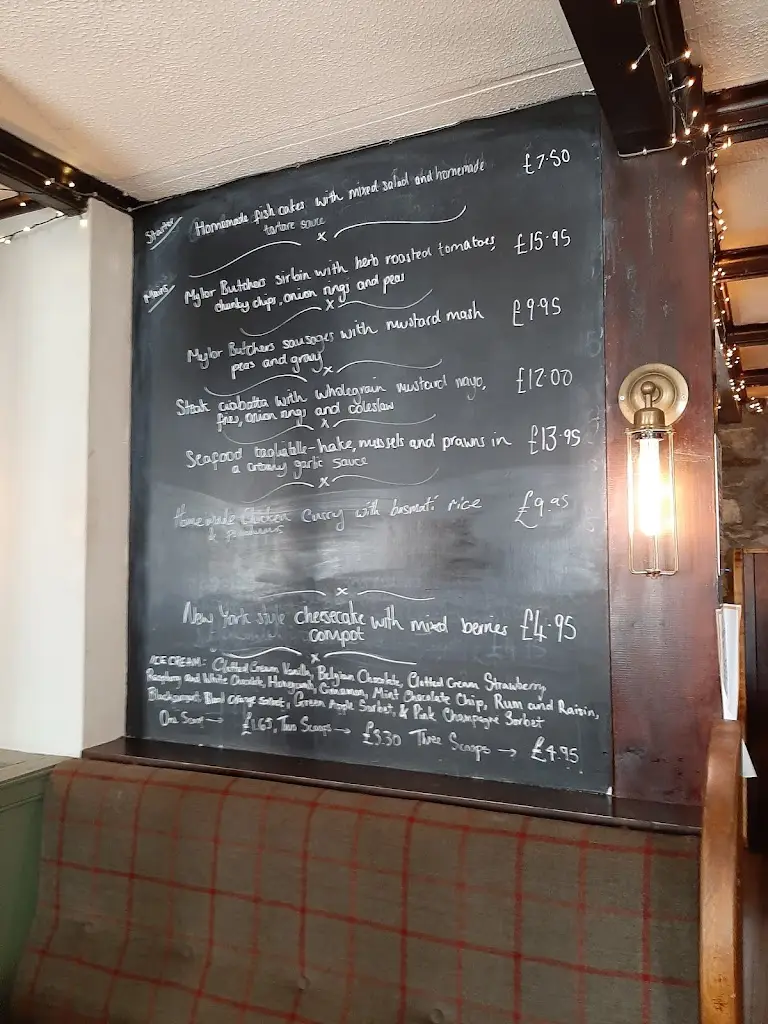 Starter
Homemade fish cakes with mixed salad and homemade £7.50
tartare sauce
x
Mains
Mylor Butchers sirloin with herb roasted tomatoes, £15.95
chunky chips, onion rings and peas
x
Mylor Butchers sausages with mustard mash £9.95
peas and gravy
x
Steak ciabatta with wholegrain mustard mayo, £12.00
fries, onion rings and coleslaw
x
Seafood tagliatelle - hake, mussels and prawns in £13.95
a creamy garlic sauce
x
Homemade Chicken Curry with basmati rice £9.95
&
x
New York style cheesecake with mixed berries £4.95
compot
x
ICE CREAM: Clotted Cream Vanilla, Belgian Chocolate, Clotted Cream Strawberry,
Raspberry and White Chocolate, Honeycomb, Cinnamon, Mint Chocolate Chip, Rum and Raisin,
Blackcurrant, Blood Orange Sorbet, Green Apple Sorbet, & Pink Champagne Sorbet
One Scoop → £1.65, Two Scoops → £3.30 Three Scoops → £4.95